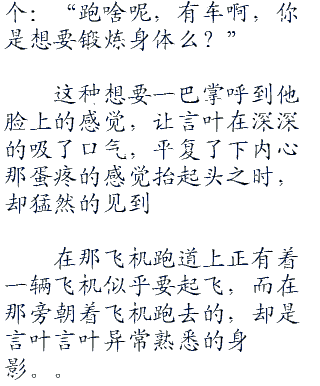 个：“跑啥呢，有车啊，你
是想要锻炼身体么？”
这种想要一巴掌呼到他
脸上的感觉，让言叶在深深
的吸了口气，平复了下内心
那蛋疼的感觉抬起头之时，
却猛然的见到
在那飞机跑道上正有着
一辆飞机似乎要起飞，而在
那旁朝着飞机跑去的，却是
言叶言叶异常熟悉的身
影。。